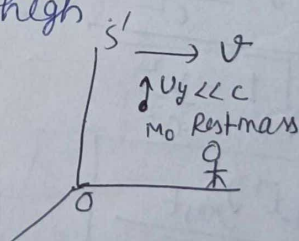 high
S' → v
↑ Uy << c
Mo Restmass
O